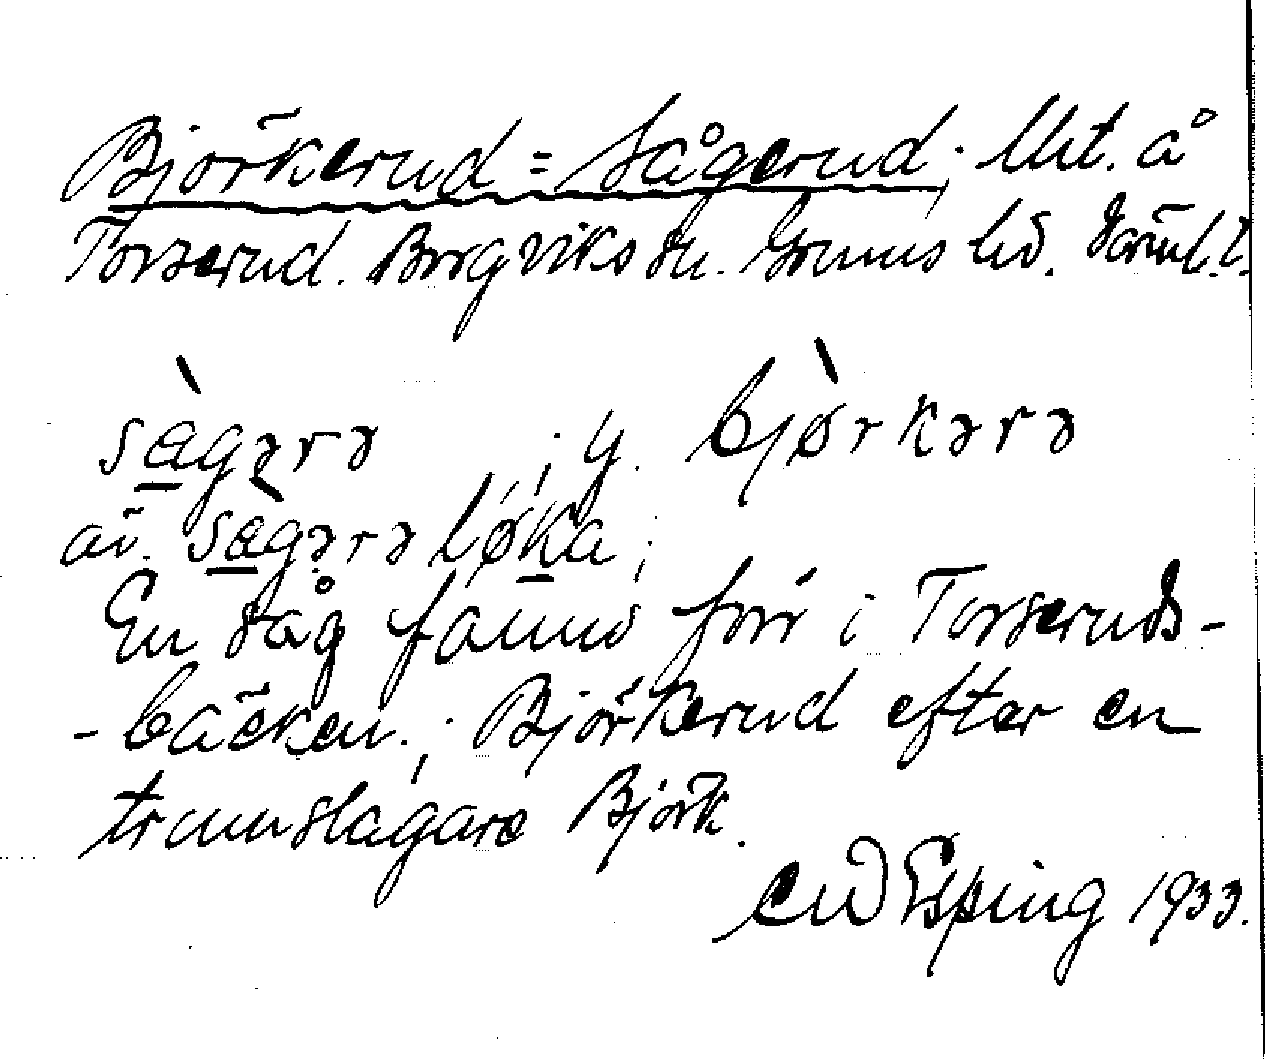 Björkerud = Sågerud; Utt. å
Torserud. Borgviks sn. Grums hd. Värml. l.
sàgərə ; y. bjørkərə
äv. sàgərə løka;
En såg fanns förr i Torseruds-
-bäcken.; Björkerud efter en
trumslagare Björk.
CW Esping 1933.